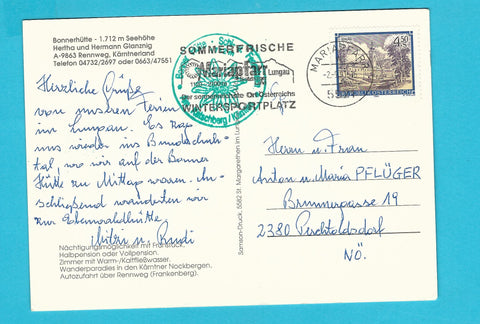 Bonnerhütte - 1.712 m Seehöhe
Hertha und Hermann Glanznig
A-9863 Rennweg, Kärntnerland
Telefon 04732/2697 oder 0663/47551
Herzliche Grüße
von unseren Ferien
im Lungau. Es zog
uns wieder ins Bundschuh-
tal, wo wir auf der Bonner
Hütte zu Mittag waren. An-
schließend wanderten wir
zur
Mitzi u. Rudi
Nächtigungsmöglichkeit mit Frühstück,
Halbpension oder Vollpension.
Zimmer mit Warm-/Kaltfließwasser.
Wanderparadies in den Kärntner Nockbergen.
Autozufahrt über Rennweg (Frankenberg).
SOMMERFRISCHE
Mariapfarr
Lungau
Der sonnenreichste Ort Österreichs
WINTERSPORTPLATZ
MARIAPFARR
4.50
Samson-Druck, 5582 St. Margarethen im Lungau
Herrn u. Frau
Anton u. Maria PFLÜGER
Brunnergasse 19
2380 Perchtoldsdorf
NÖ.